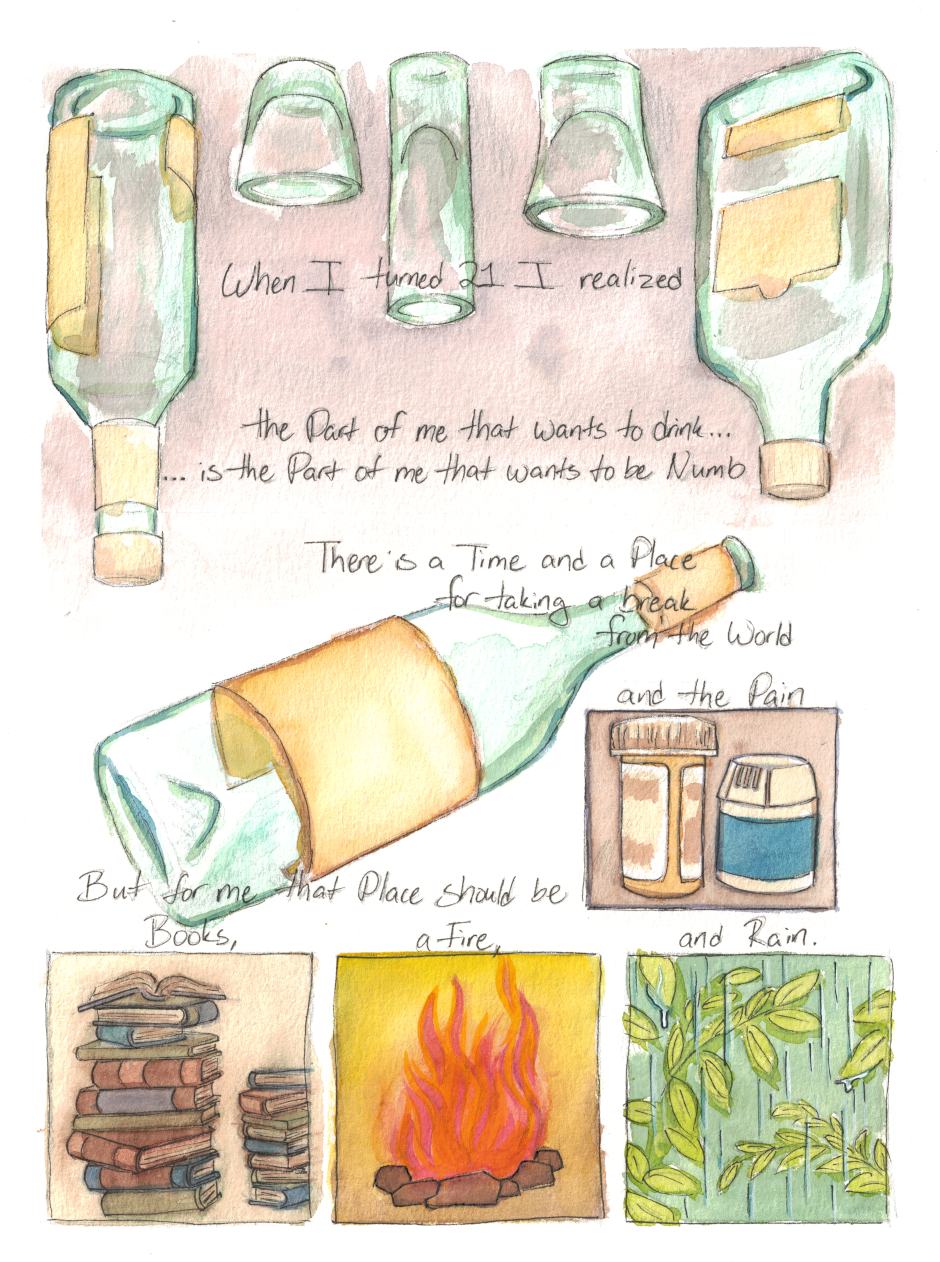 When I turned 21 I realized
the Part of me that wants to drink...
... is the Part of me that wants to be Numb
There is a Time and a Place
for taking a break
from the World
and the Pain
But for me that Place should be
Books,
a Fire,
and Rain.